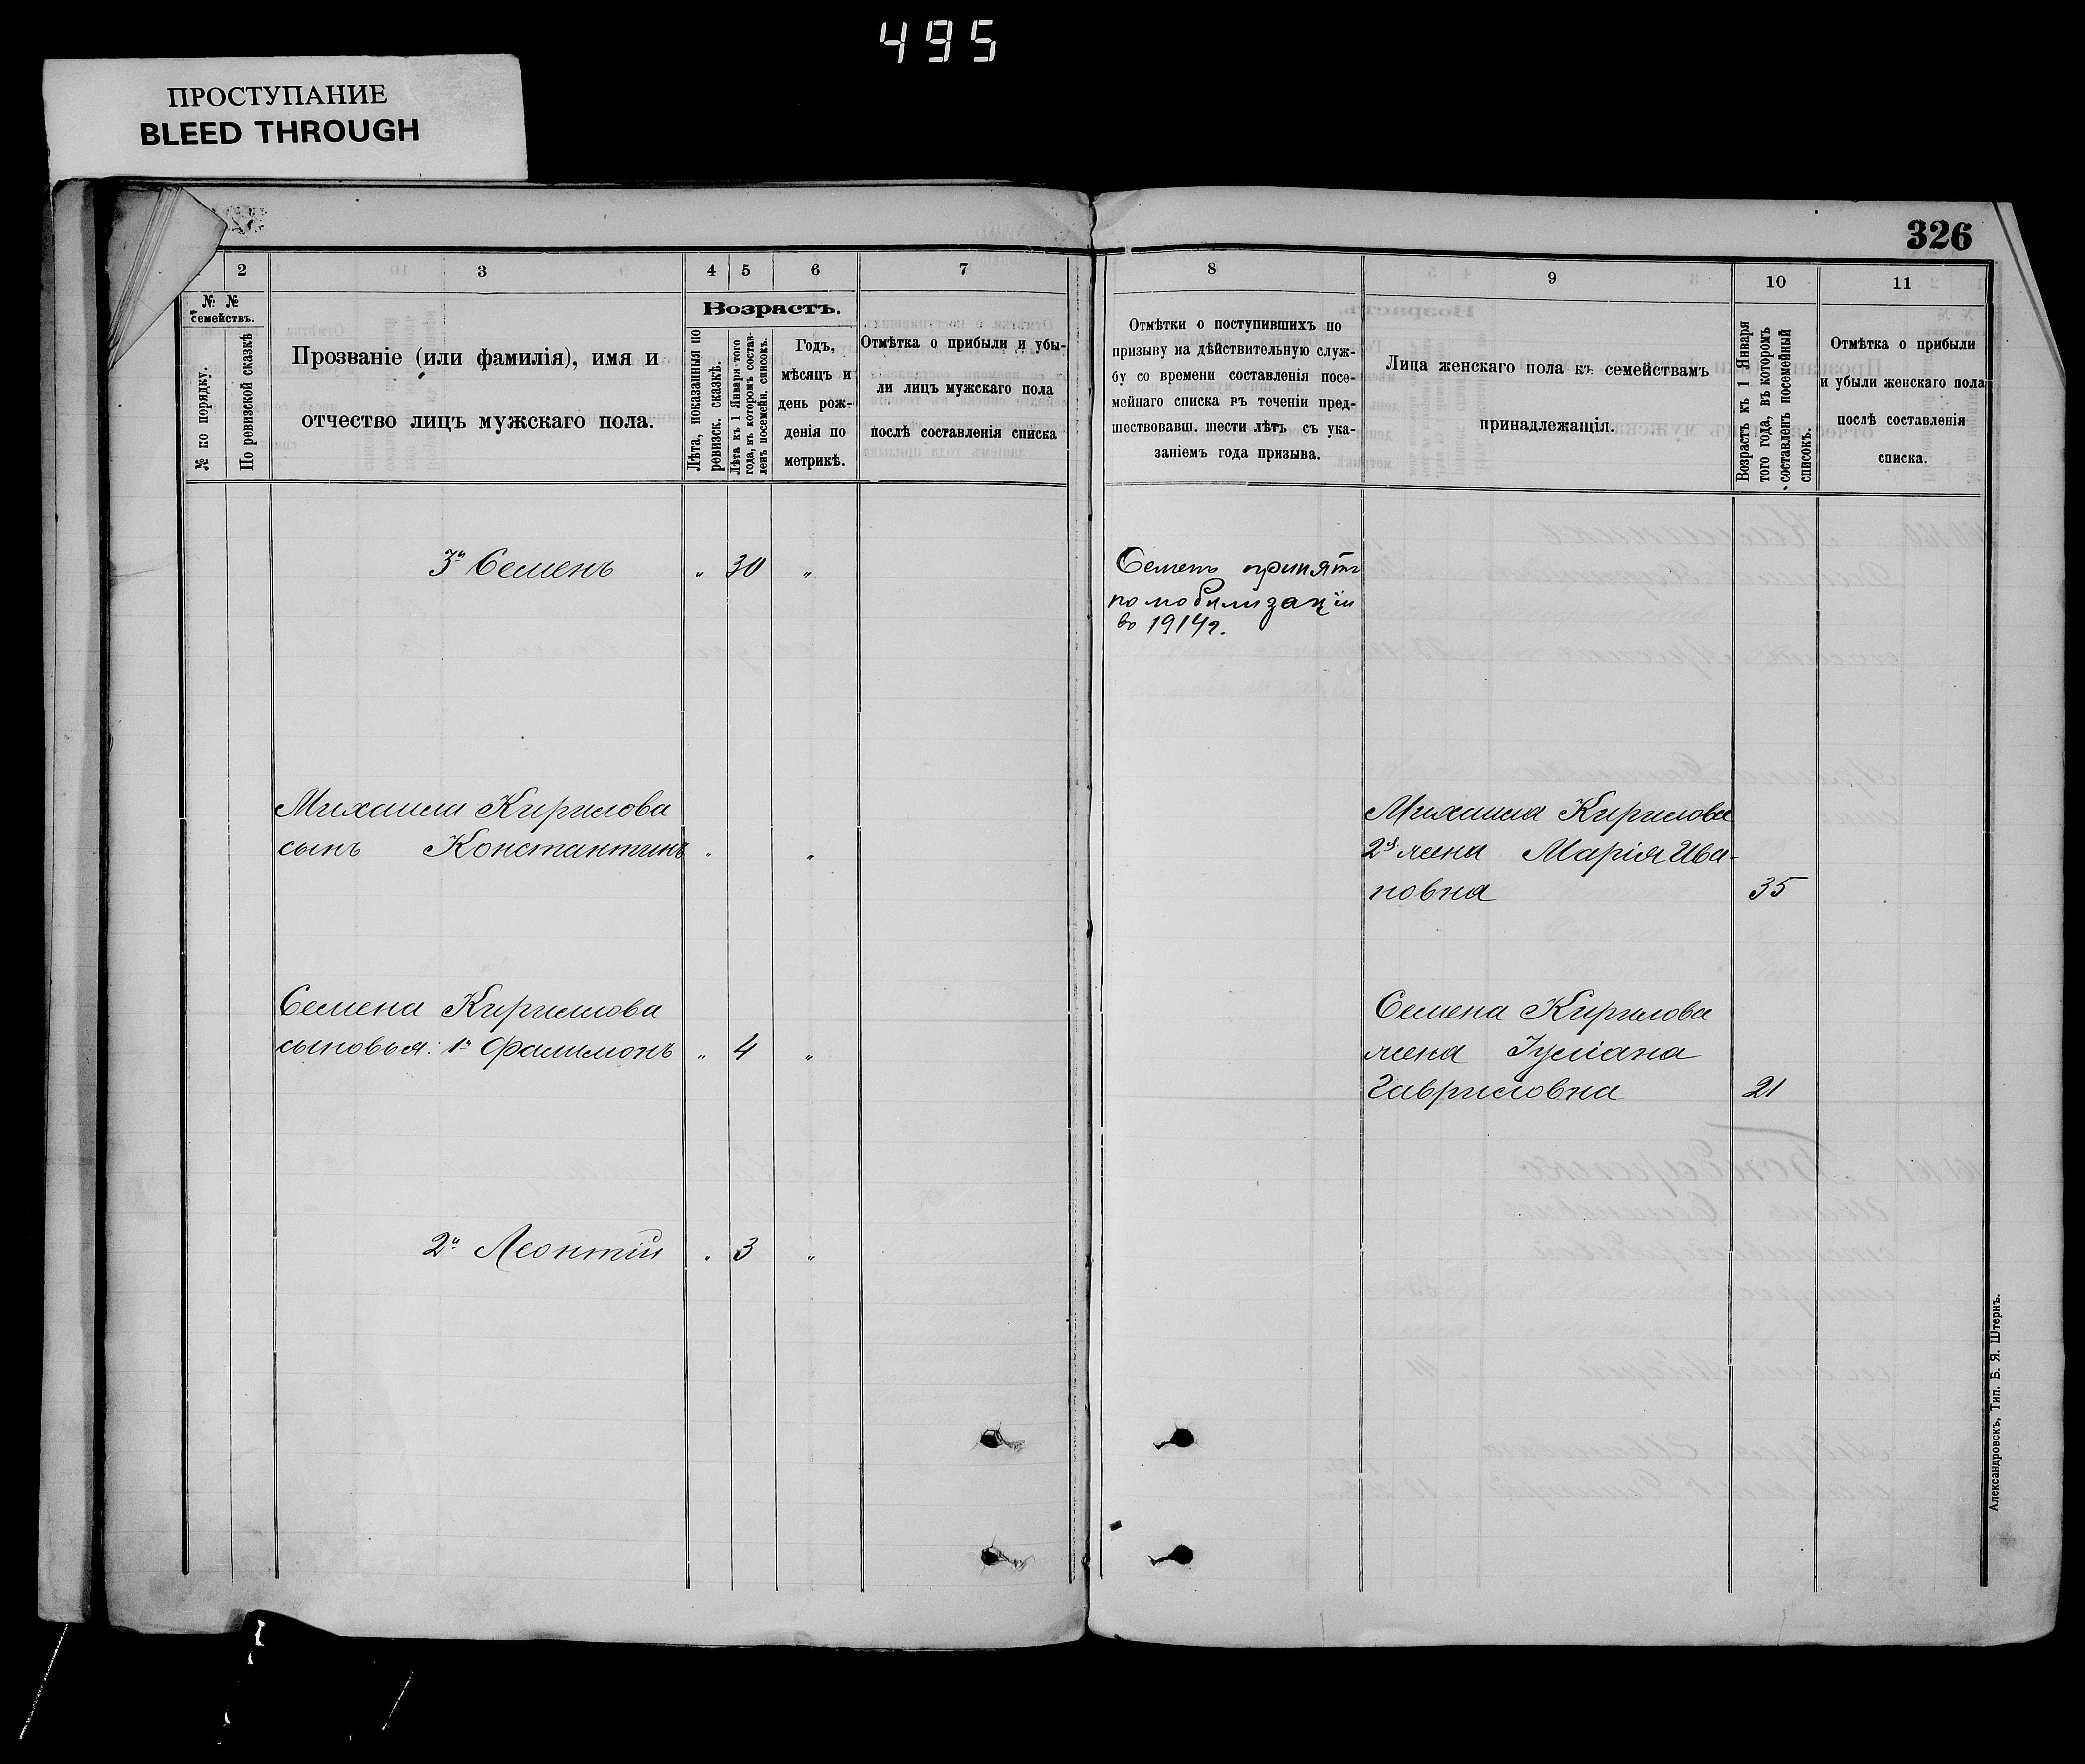 495
ПРОСТУПАНИЕ
BLEED THROUGH
326
2 3 4 5 6 7 8 9 10 11
№ № семействъ.
№ по порядку.
По ревизской сказкѣ
Прозваніе (или фамилія), имя и
отчество лицъ мужскаго пола.
Возрастъ.
Лѣта, показанныя по
ревизск. сказкѣ.
Лѣта къ 1 Января того
года, въ которомъ состав-
ленъ посемейн. списокъ.
Годъ,
мѣсяцъ и
день рож-
денія по
метрикѣ.
Отмѣтка о прибыли и убы-
ли лицъ мужскаго пола
послѣ составленія списка
Отмѣтки о поступившихъ по
призыву на дѣйствительную служ-
бу со времени составленія посе-
мейнаго списка въ теченіи пред-
шествовавш. шести лѣтъ съ ука-
заніемъ года призыва.
Лица женскаго пола къ семействамъ
принадлежащія.
Возрастъ къ 1 Января
того года, въ которомъ
составленъ посемейный
списокъ.
Отмѣтка о прибыли
и убыли женскаго пола
послѣ составленія
списка.
3й Семенъ „ 30 „
Семенъ принятъ
по мобилизаціи
въ 1914г.
Михаила Кирилова
сынъ Константинъ „ „
Михаила Кирилова
2я жена Марія Ива-
новна 35
Семена Кирилова
сыновья: 1й Филимонъ „ 4 „
Семена Кирилова
жена Іуліана
Гавриловна 21
2й Леонтій „ 3 „
Александровскъ, Тип. Б. Я. Штернъ.